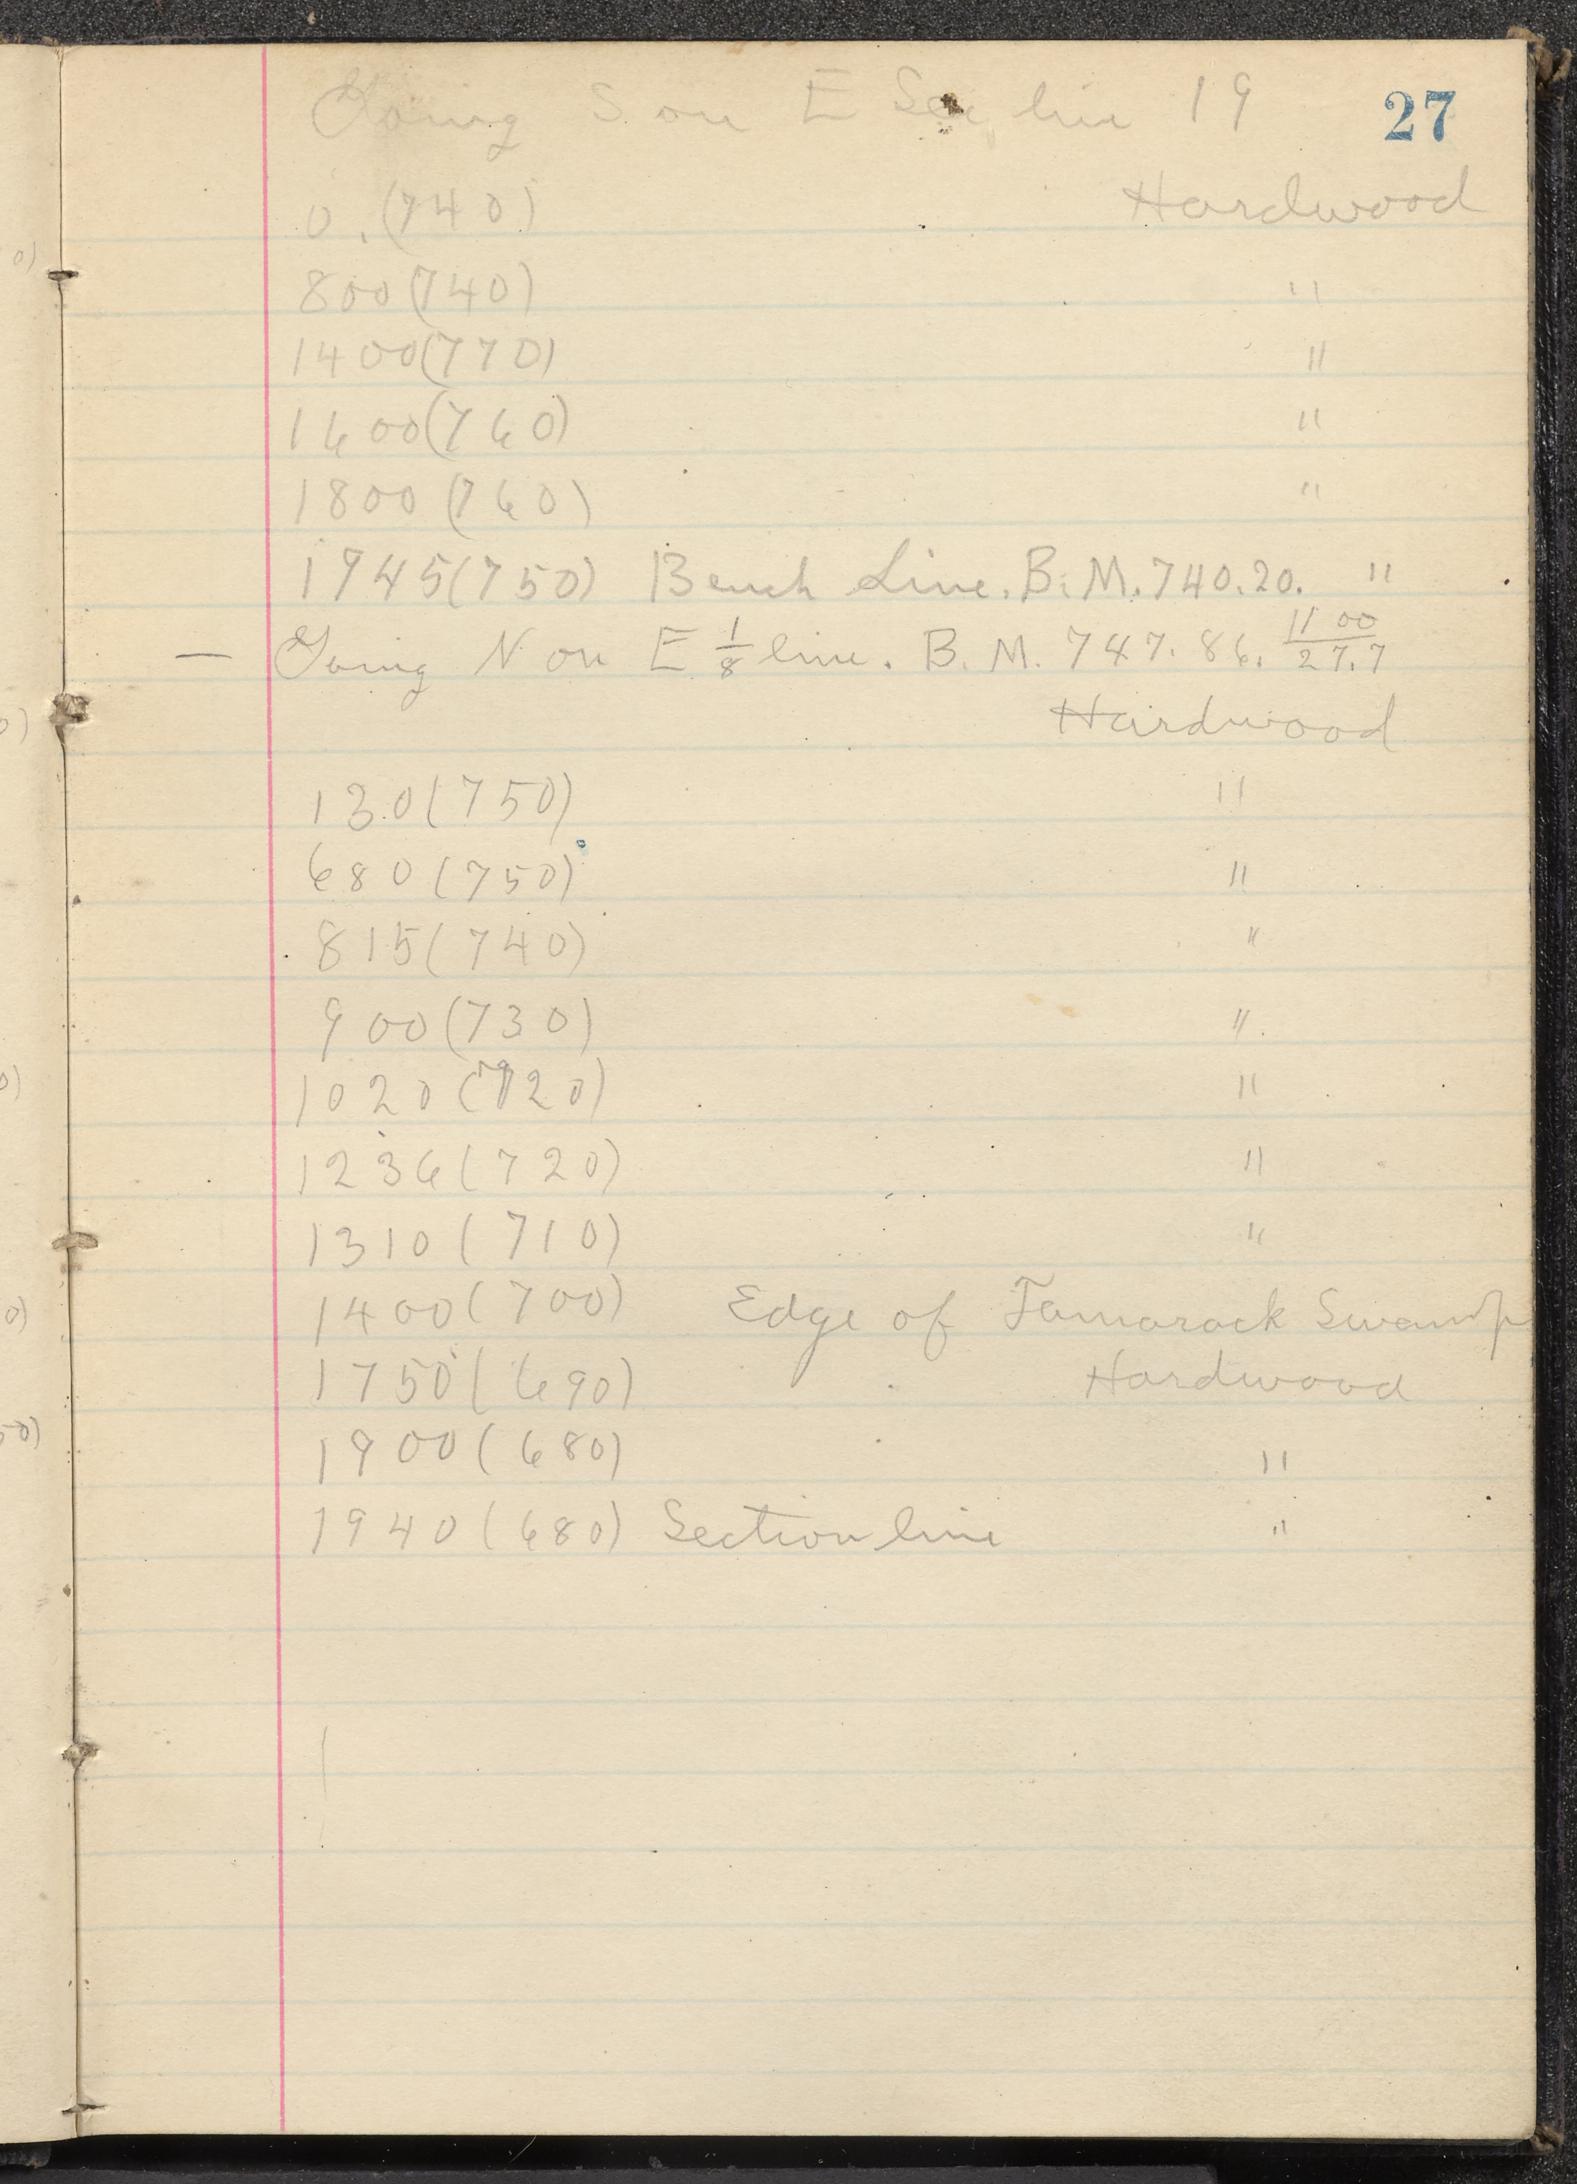 27
Going S on E Sec line 19
0 (740) Hardwood
800 (740) "
1400 (770) "
1600 (760) "
1800 (760) "
1945 (750) Bench Line. B.M. 740.20. "
— Going N on E 1/8 line. B.M. 747.86. 11 00 / 27.7
Hardwood
130 (750) "
680 (750) "
815 (740) "
900 (730) "
1020 (720) "
1236 (720) "
1310 (710) "
1400 (700) Edge of Tamarack Swamp
1750 (690) Hardwood
1900 (680) "
1940 (680) Section line "